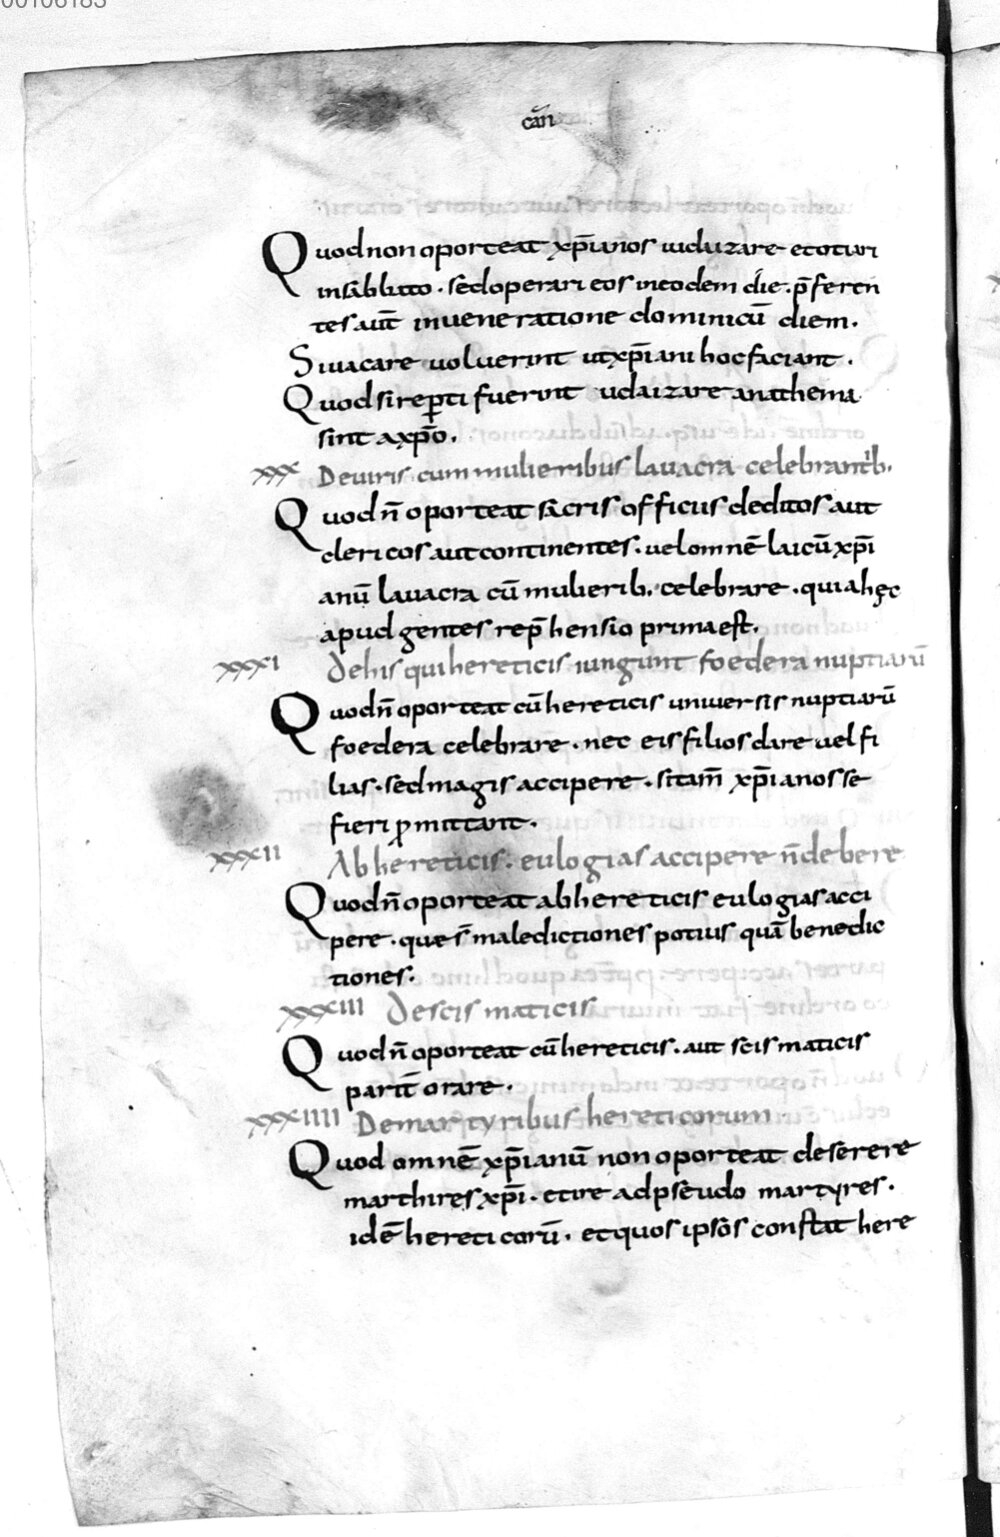 00106183
cāń
Quod non oporteat xp̄ianos iudaizare et otiari
in sabbato. sed operari eos in eodem die. p̄feren
tes aut̄ in ueneratione dominicū diem.
Si uacare uoluerint ut xp̄iani hoc faciant.
Quod si rep̱ti fuerint iudaizare anathema
sint a xp̄o.
xxx De uiris cum mulieribus lauacra celebrantib.
Quod n̄ oporteat sacris officiis deditos aut
clericos aut continentes. uel omnē laicū xp̄i
anū lauacra cū mulierib. celebrare. quia hęc
apud gentes rep̄hensio prima est.
xxxi De his qui hereticis iungunt foedera nuptiarū
Quod n̄ oporteat cū hereticis uniuersis nuptiarū
foedera celebrare. nec eis filios dare uel fi
lias. sed magis accipere. si tam̄ xp̄ianos se
fieri ꝓmittant.
xxxii Ab hereticis. eulogias accipere n̄ debere
Quod n̄ oporteat ab hereticis eulogias acci
pere. que s̄ maledictiones potius quā benedic
tiones.
xxxiii De scismaticis
Quod n̄ oporteat cū hereticis. aut scismaticis
parit̄ orare.
xxxiiii De martyribus hereticorum.
Quod omnē xp̄ianū non oporteat deserere
marthires xp̄i. et ire ad pseudo martyres.
id ē hereticorū. et quos ipsos constat here